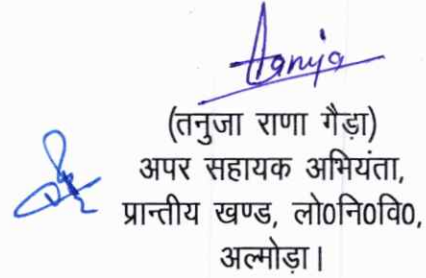 Tanuja
(तनुजा राणा गैड़ा)
अपर सहायक अभियंता,
प्रान्तीय खण्ड, लो0नि0वि0,
अल्मोड़ा।